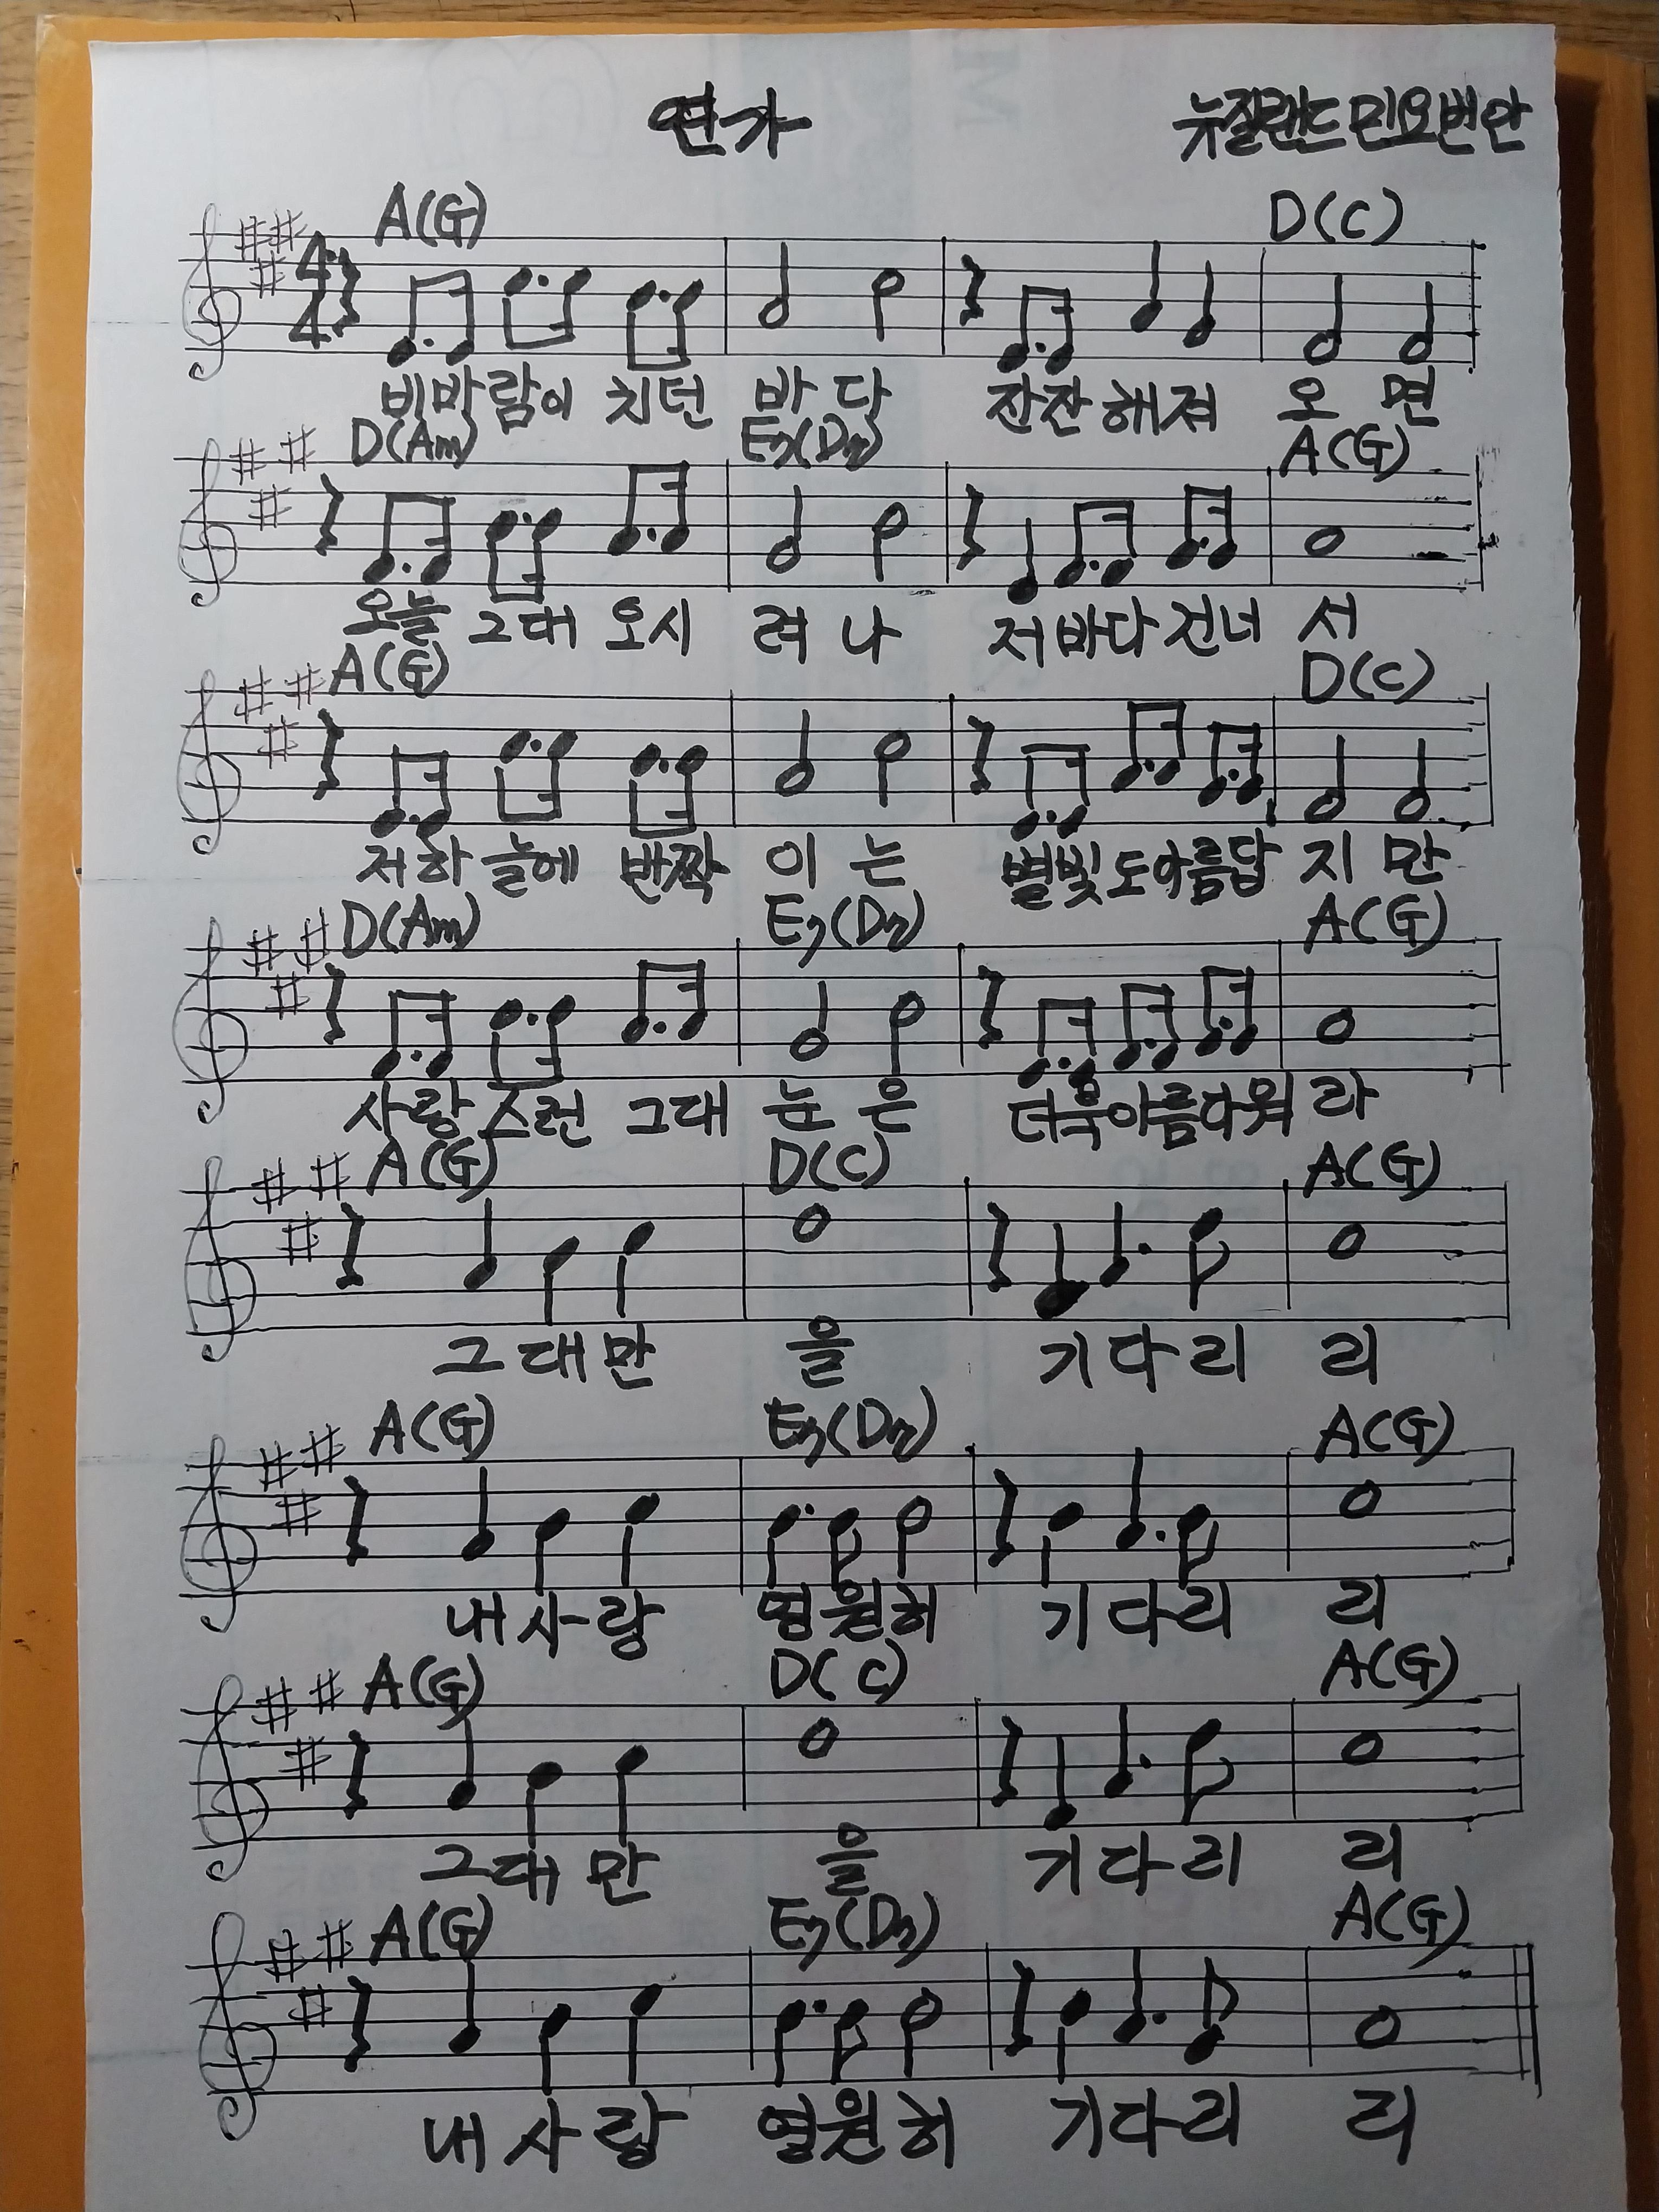 연가
뉴질랜드 민요번안
A(G) D(C)
4
4
비바람이 치던 바다 잔잔해져 오면
D(Am) E7(D7) A(G)
오늘 그대 오시려나 저바다 건너서
A(G) D(C)
저하늘에 반짝이는 별빛도아름답지만
D(Am) E7(D7) A(G)
사랑스런 그대 눈은 더욱아름다워라
A(G) D(C) A(G)
그대만을 기다리리
A(G) E7(D7) A(G)
내사랑 영원히 기다리리
A(G) D(C) A(G)
그대만을 기다리리
A(G) E7(D7) A(G)
내사랑 영원히 기다리리